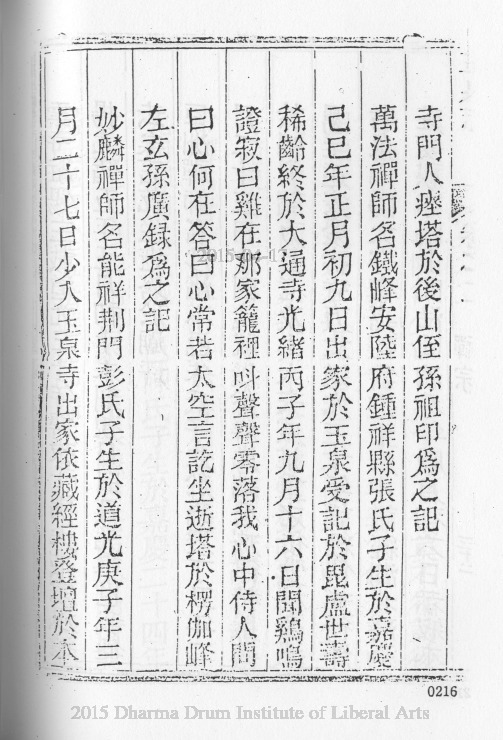 寺門人瘞塔於後山侄孫祖印爲之記
萬法禪師名鐵峰安陸府鍾祥縣張氏子生於嘉慶
己巳年正月初九日出家於玉泉受記於毘盧世壽
稀齡終於大通寺光緒丙子年九月十六日聞鷄鳴
證寂曰雞在那家籠裡叫聲聲零落我心中侍人問
曰心何在答曰心常若太空言訖坐逝塔於楞伽峰
左玄孫廣録爲之記
妙麟禪師名能祥荆門彭氏子生於道光庚子年三
月二十七日少入玉泉寺出家依藏經樓登壇於本
0216
2015 Dharma Drum Institute of Liberal Arts